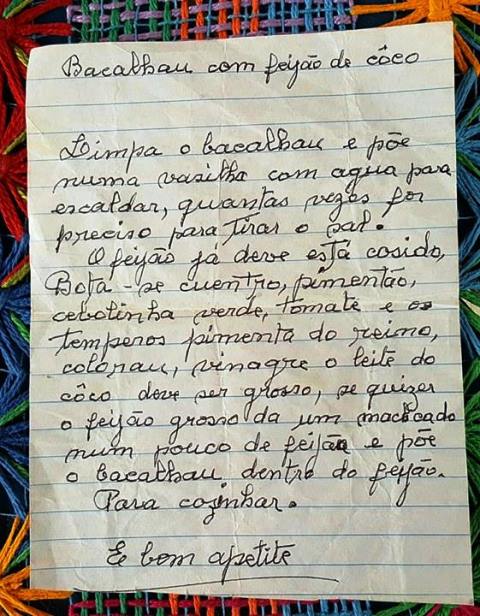 Bacalhau com feijão de côco
Limpa o bacalhau e põe
numa vasilha com agua para
escaldar, quantas vezes for
preciso para tirar o sal.
O feijão já deve está cosido,
Bota-se cuentro, pimentão,
cebolinha verde, tomate e os
temperos pimenta do reino,
colorau, vinagre o leite do
côco deve ser grosso, se quizer
o feijão grosso da um machcado
num pouco de feijão e põe
o bacalhau dentro do feijão.
Para cozinhar.
E bom apetite